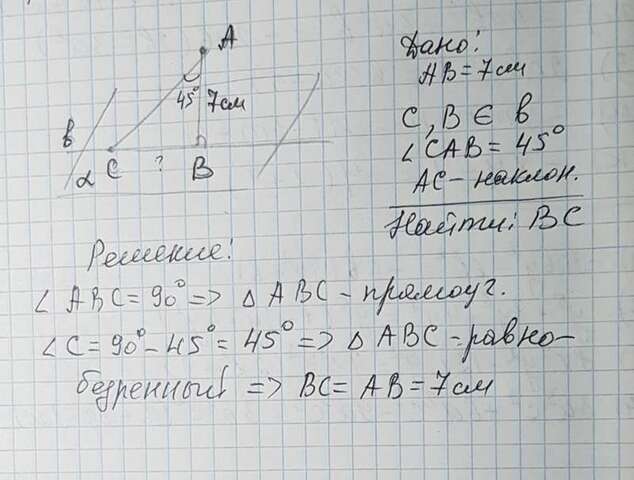 A
45° 7см
в
α C ? B
Дано:
AB = 7см
C, B ∈ в
∠CAB = 45°
AC - наклон.
Найти: BC
Решение:
∠ ABC = 90° => △ ABC - прямоуг.
∠C = 90° - 45° = 45° => △ ABC - равно-
бедренный => BC = AB = 7см